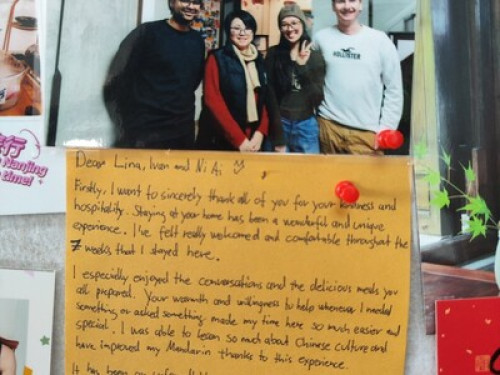 HOLLISTER
Nanjing
time!
Dear Lina, Ivan and Ni Ai
Firstly, I want to sincerely thank all of you for your kindness and
hospitality. Staying at your home has been a wonderful and unique
experience. I've felt really welcomed and comfortable throughout the
7 weeks that I stayed here.
I especially enjoyed the conversations and the delicious meals you
all prepared. Your warmth and willingness to help whenever I needed
something or asked something made my time here so much easier and
special. I was able to learn so much about Chinese culture and
have improved my Mandarin thanks to this experience.
It has been an